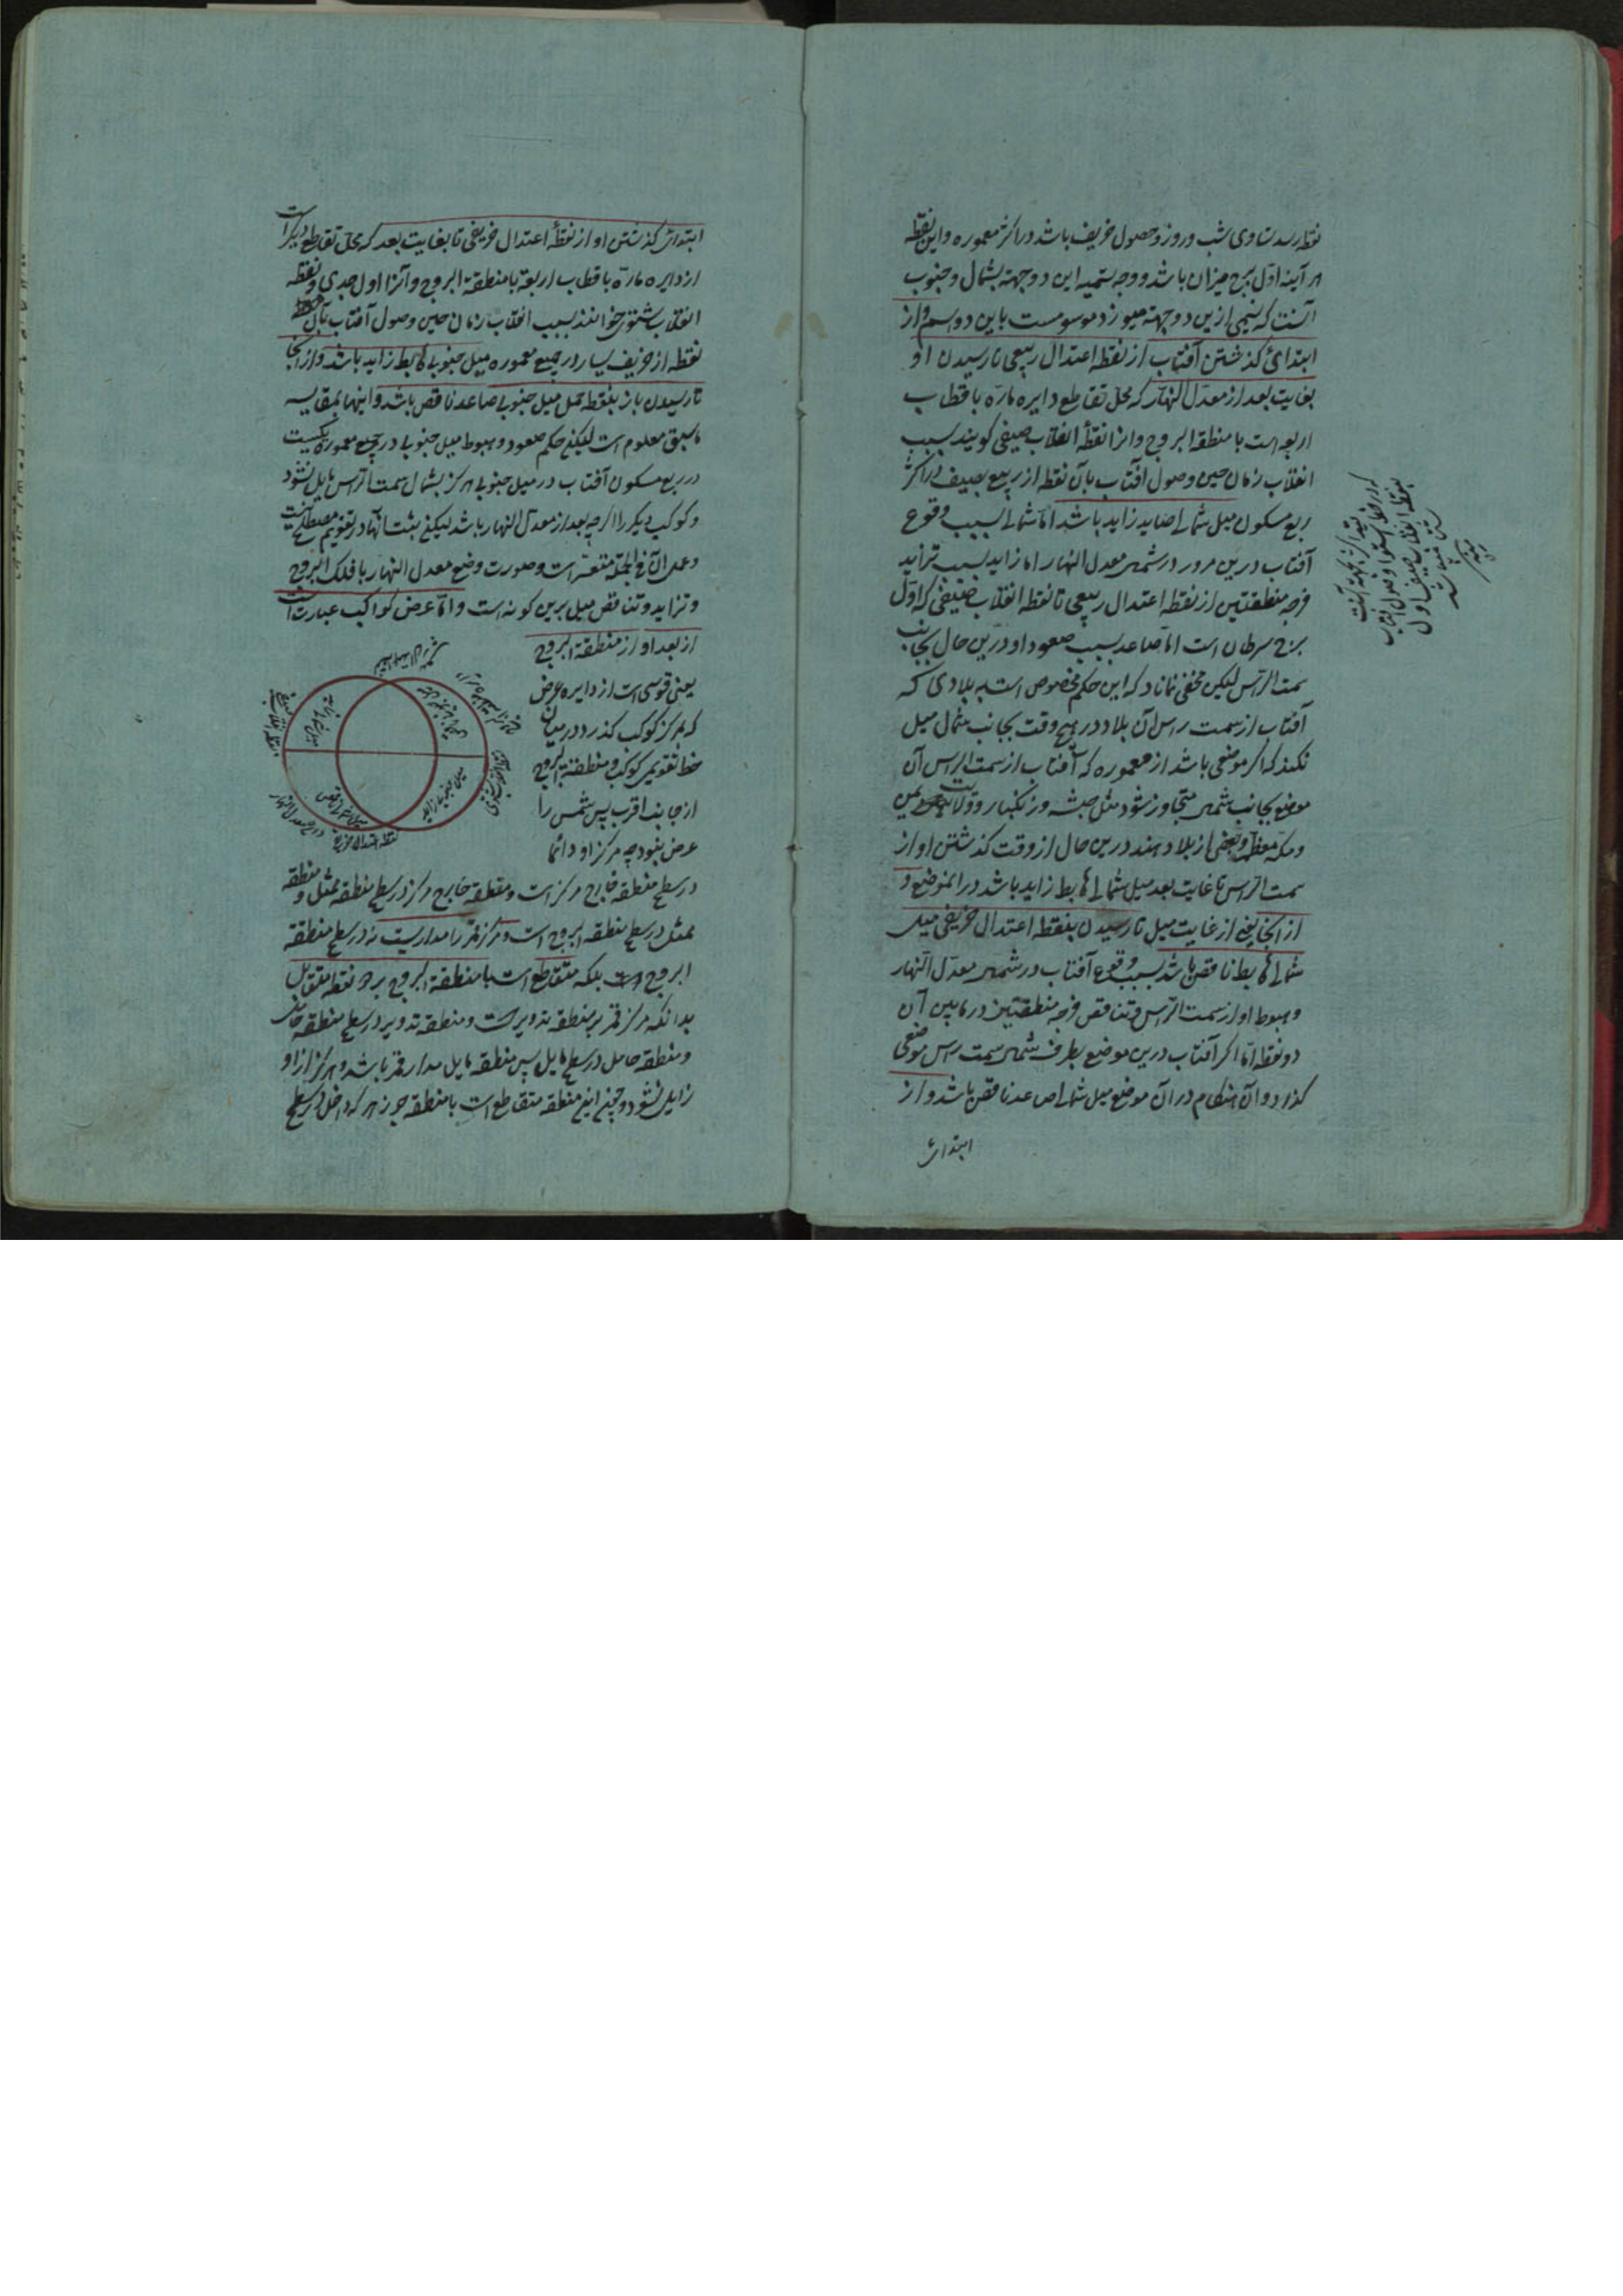 نقطه رسد تساوی شب و روز و حصول خریف باشد در اکثر معموره و این نقطه
هر آینه اول برج میزان باشد و وجه تسمیه این دو جهة بشمال و جنوب
آنست که نسیمی ازین دو جهة میوزد موسومست باین دو اسم و از
ابتدائ کذشتن آفتاب از نقطه اعتدال ربیعی تا رسیدن او
بغایت بعد از معدّل النهار که محل تقاطع دایره مارّه باقطاب
اربعه است با منطقة البروج و انرا نقطهٔ انقلاب صیفی کویند بسبب
انقلاب زمان حین وصول آفتاب بآن نقطه از ربیع بصیف در اکثر
ربع مسکون میل شمالے صاید زاید باشد امّا شمالے بسبب وقوع
آفتاب درین مرور در شمال معدل النهار اما زاید بسبب تزاید
فرجه منطقتین از نقطه اعتدال ربیعی تا نقطه انقلاب صیفی که اول
برج سرطان است امّا صاعد بسبب صعود او درین حال بجانب
سمت الرّاس لیکن مخفی نماند که این حکم مخصوص است به بلادی که
آفتاب از سمت راس آن بلاد در هیچ وقت بجانب شمال میل
نکند که اکر موضعی باشد از معموره که آفتاب از سمت الراس آن
موضع بجانب شمال متجاوز شود مثل حبشه و زنکبار و ولایت یمن
و مکه معظمه و بعضی از بلاد هند درین حال از وقت کذشتن او از
سمت الراس تا غایت بعد میل شمالے هابط زاید باشد در انموضع و
از انجا یعنی از غایت میل تا رسیدن بنقطه اعتدال خریفی میل
شمالے هابط ناقص باشد بسبب وقوع آفتاب در شمال معدّل النهار
و هبوط او از سمت الراس و تناقص فرجه منطقتین در مابین آن
دو نقطه امّا اکر آفتاب درین موضع بطرف شمال سمت راس موضعی
کذرد و آن هنکام در آن موضع میل شمالے صاعد ناقص باشد و از
ابتدائ
ابتدائ کذشتن او از نقطهٔ اعتدال خریفی تا بغایت بعد که محل تقاطع دیکر است
از دایره مارّه باقطاب اربعه با منطقة البروج و آنرا اول جدی و نقطه
انقلاب شتوی خوانند بسبب انقلاب زمان حین وصول آفتاب بآن
نقطه از خریف در جمیع معموره میل جنوبے هابط زاید باشد و از انجا
تا رسیدن باز بنقطه حمل میل جنوبے صاعد ناقص باشد و اینها بمقایسه
ماسبق معلوم است لیکن حکم صعود و هبوط میل جنوبے در جمیع معموره یکیست
در ربع مسکون آفتاب در میل جنوبے هرکز بشمال سمت الراس مایل نشود
و کوکب دیکر را اکرچه بعد از معدل النهار باشد لیکن ثبت آنها در تقویم مصطلح نیست
و عمل آن فی الجمله متعسّر است و صورت وضع معدل النهار با فلک البروج
و تزاید و تناقص میل برین کونه است و امّا عرض کواکب عبارت است
از بعد او از منطقة البروج
یعنی قوسی است از دایره عرض
که بمرکز کوکب کذرد در میان
خط تقویمی کوکب و منطقة البروج
از جانب اقرب پس شمس را
عرض نبود چه مرکز او دائما
در سطح منطقه خارج مرکز است و منطقه خارج مرکز در سطح منطقه ممثل و منطقه
ممثل در سطح منطقه البروج است و مرکز قمر را مداریست نه در سطح منطقه
البروج بلکه متقاطع است با منطقة البروج بر دو نقطه متقابل
بدانکه مرکز قمر بر منطقه تدویر است و منطقه تدویر در سطح منطقه حامل
و منطقه حامل در سطح مایل پس منطقه مایل مدار قمر باشد و هرکز از او
زایل نشود و این منطقه متقاطع است با منطقه جوزهر که داخل در سطح